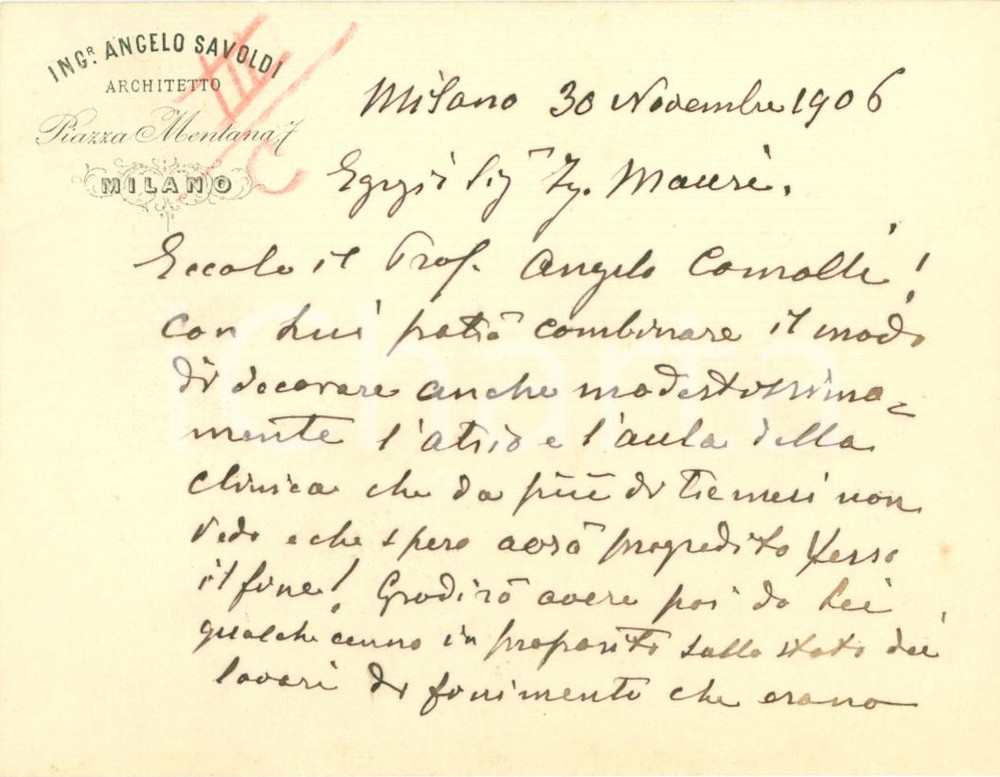 INGR. ANGELO SAVOLDI
ARCHITETTO
Piazza Mentana, 7
MILANO
Milano 30 Novembre 1906
Egregi Sigr Ing. Mauri.
Eccole il Prof. Angelo Comolli!
con Lui potrà combinare il modo
di decorare anche modestissima=
mente l'atrio e l'aula della
clinica che da più di tre mesi non
vedo e che spero avrà progredito verso
il fine! Gradirò avere poi da Lei
qualche cenno in proposito sullo stato dei
lavori di finimento che erano